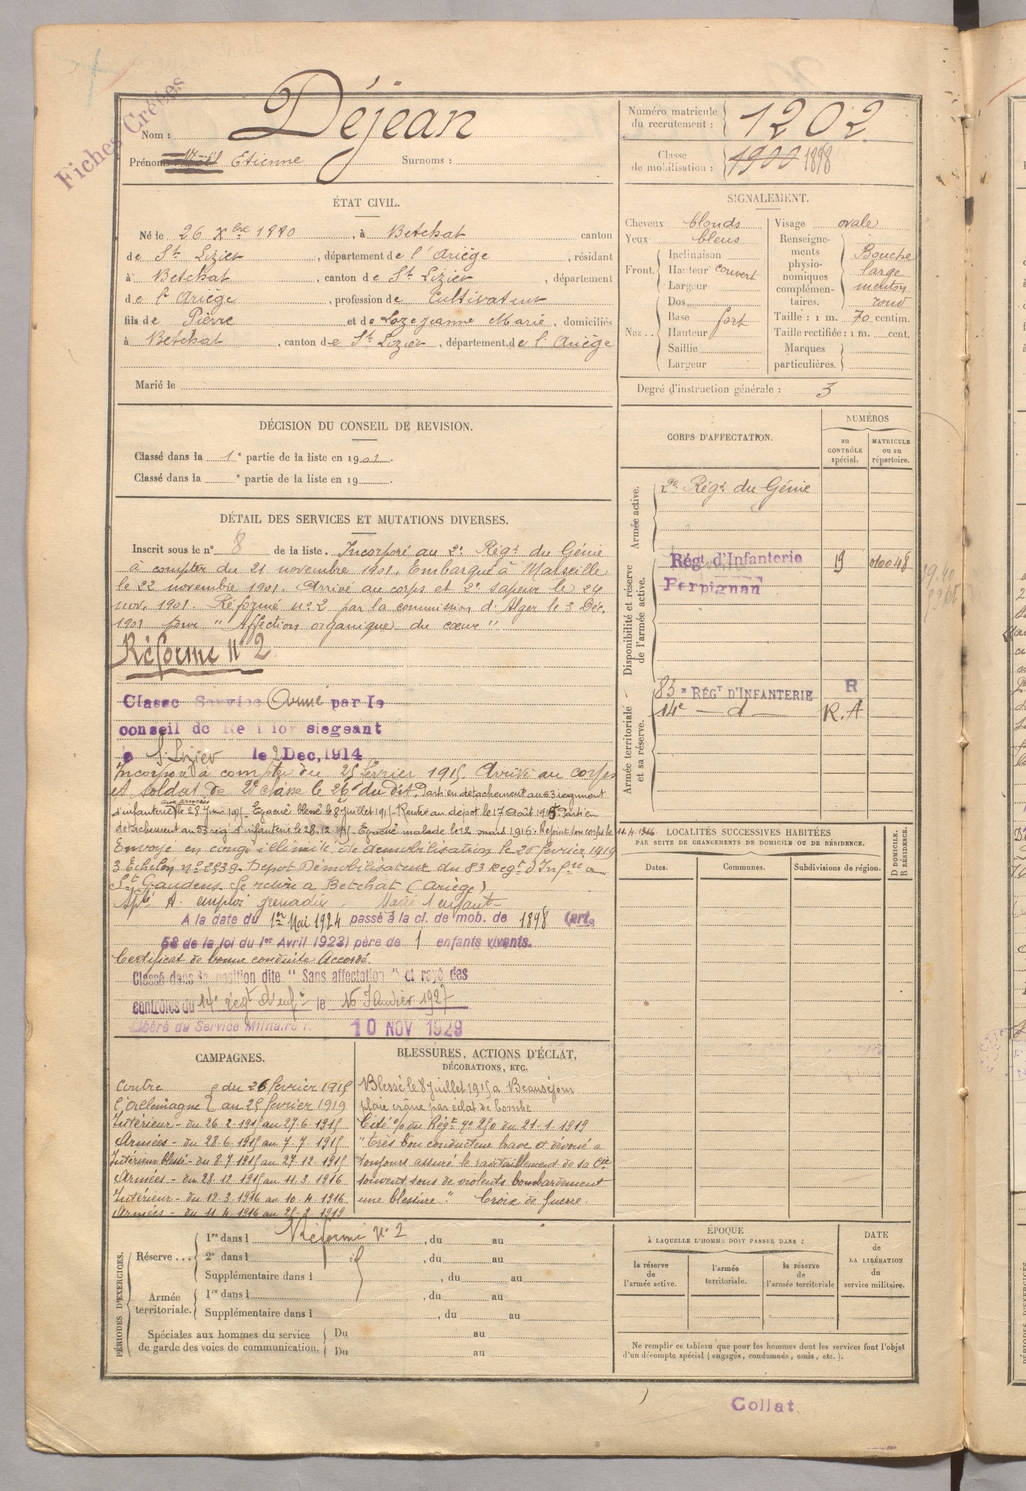 Fiches Créées
Nom : Déjean
Prénoms : Etienne Surnoms :
Numéro matricule du recrutement : 1202
Classe de mobilisation : 1900 1898
ÉTAT CIVIL.
Né le 26 Xbre 1880, à Betchat canton
de St. Lizier, département de l'Ariège, résidant
à Betchat, canton de St Lizier, département
de l'Ariège, profession de Cultivateur
fils de Pierre et de Loze Jeanne Marie, domiciliés
à Betchat, canton de St Lizier, département de l'Ariège
Marié le
SIGNALEMENT.
Cheveux blonds
Yeux bleus
Front. Inclinaison
Hauteur couvert
Largeur
Nez. Dos
Base fort
Hauteur
Saillie
Largeur
Visage ovale
Renseignements physionomiques complémentaires. Bouche large menton rond
Taille : 1 m. 70 centim.
Taille rectifiée : 1 m. cent.
Marques particulières.
Degré d'instruction générale : 3
DÉCISION DU CONSEIL DE REVISION.
Classé dans la 1e partie de la liste en 1901.
Classé dans la e partie de la liste en 19 .
DÉTAIL DES SERVICES ET MUTATIONS DIVERSES.
Inscrit sous le n° 8 de la liste. Incorporé au 2e Régt du Génie
à compter du 21 novembre 1901. Embarqué à Marseille
le 22 novembre 1901. Arrivé au corps et 2e sapeur le 24
nov. 1901. Réformé n° 2 par la commission d'Alger le 3 Déc.
1901 pour "Affection organique du cœur"
Réforme N° 2
Classé Service Armé par le
conseil de Révision siégeant
à St Lizier le 2 Dec, 1914
Incorporé à compter du 25 février 1915. Arrivé au corps
et soldat de 2e classe le 26 du dit. Parti en détachement au 53 régiment
d'infanterie aux armées le 28 Juin 1915. Evacué blessé le 8 juillet 1915. Rentré au dépôt le 17 août 1915. Parti en
détachement au 53 régt d'infanterie le 28.12.1915. Evacué malade le 12 mars 1916. Rejoint son corps le 11.4.1916
Envoyé en congé illimité de démobilisation le 25 février 1919
3 Echelon n° 2939 Dépôt Démobilisateur du 83 Régt d'Infrie
St Gaudens. Se retire à Betchat (Ariège)
A. emploi grenadier. Marié 1 enfant
A la date du 1er Mai 1924 passé à la cl. de mob. de 1898 (art.
58 de la loi du 1er Avril 1923) père de 1 enfants vivants.
Certificat de bonne conduite Accordé.
Classé dans la position dite "Sans affectation" et rayé des
contrôles du 14e régt d'Infie le 16 Janvier 1927
Libéré du Service Militaire l. 10 NOV 1929
CORPS D'AFFECTATION.
NUMÉROS
au CONTRÔLE spécial.
MATRICULE ou au répertoire.
Armée active.
2e Régt du Génie
Disponibilité et réserve de l'armée active.
Régt d'Infanterie 19
Perpignan
Armée territoriale et sa réserve.
83e RÉGT D'INFANTERIE R
14e — d — R.A
LOCALITÉS SUCCESSIVES HABITÉES
PAR SUITE DE CHANGEMENTS DE DOMICILE OU DE RÉSIDENCE.
Dates. Communes. Subdivisions de région. D DOMICILE. R RÉSIDENCE.
CAMPAGNES.
Contre du 26 février 1915
l'Allemagne au 25 février 1919
Intérieur - du 26.2.1915 au 27.6.1915
Armées - du 28.6.1915 au 7.7.1915
Intérieur blessé - du 8.7.1915 au 27.12.1915
Armées - du 28.12.1915 au 11.3.1916
Intérieur - du 12.3.1916 au 10.4.1916
Armées - du 11.4.1916 au 25.2.1919
BLESSURES, ACTIONS D'ÉCLAT,
DÉCORATIONS, ETC.
Blessé le 8 juillet 1915 à Beauséjour
plaie crâne par éclat de bombe
Cité o/ du Régt n° 250 du 21.1.1919
"Très bon conducteur brave et dévoué a
toujours assuré le ravitaillement de sa Cie
souvent sous de violents bombardement
une blessure". Croix de Guerre.
PÉRIODES D'EXERCICES.
Réserve... 1re dans l Réformé N° 2, du au
2e dans l , du au
Supplémentaire dans l , du au
Armée territoriale. 1re dans l , du au
Supplémentaire dans l , du au
Spéciales aux hommes du service de garde des voies de communication. Du au
Du au
ÉPOQUE
À LAQUELLE L'HOMME DOIT PASSER DANS :
la réserve de l'armée active.
l'armée territoriale.
la réserve de l'armée territoriale
DATE de LA LIBÉRATION du service militaire.
Ne remplir ce tableau que pour les hommes dont les services font l'objet
d'un décompte spécial (engagés, condamnés, omis, etc.).
Collat.